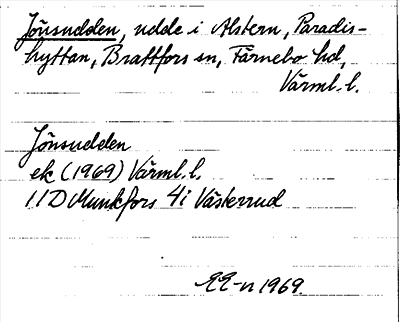 Jönsudden, udde i Alstern, Paradis-
hyttan, Brattfors sn, Färnebo hd,
Värml. l.
Jönsudden
ek (1969) Värml. l.
11D Munkfors 4i Västerrud
EE-n 1969.